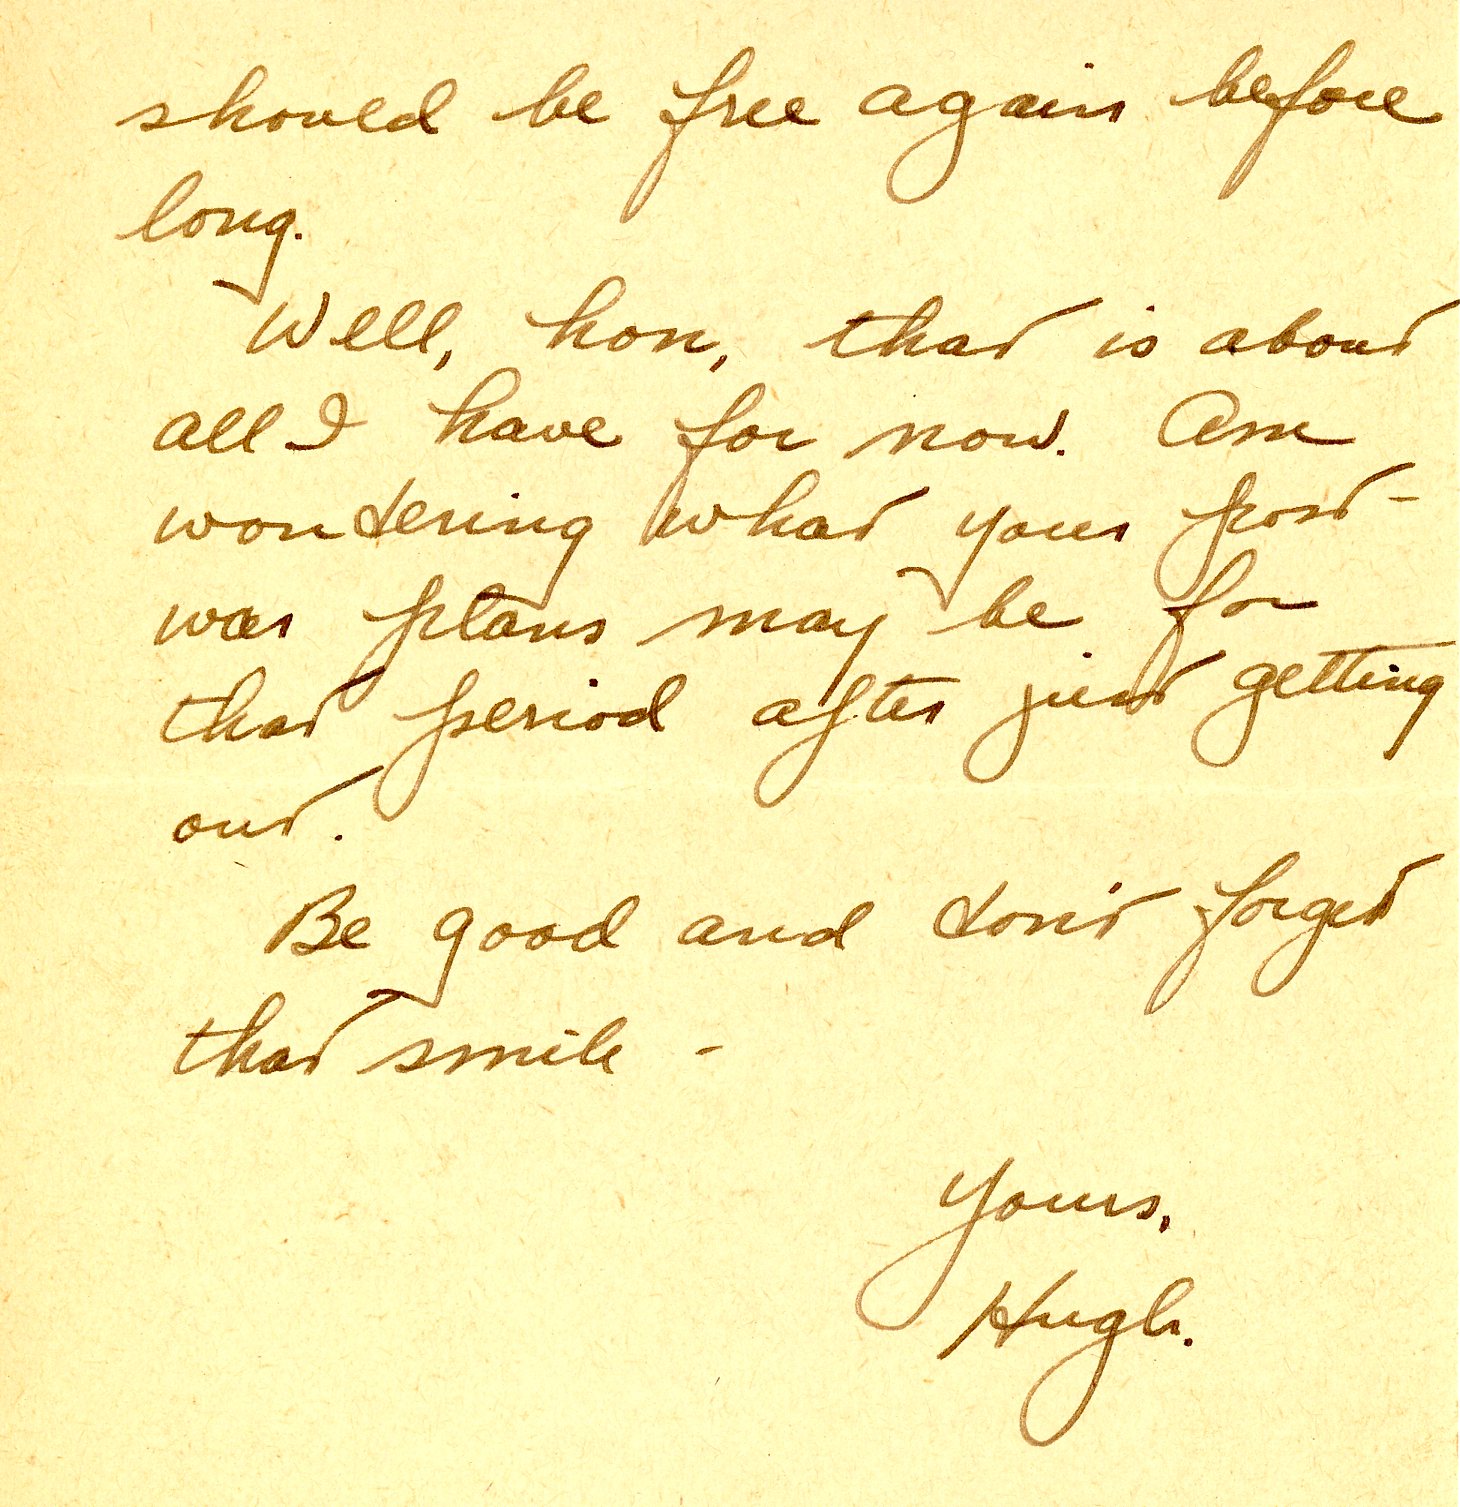 should be free again before
long.
Well, hon, that is about
all I have for now. Am
wondering what your post-
war plans may be for
that period after just getting
out.
Be good and don't forget
that smile -
Yours,
Hugh.